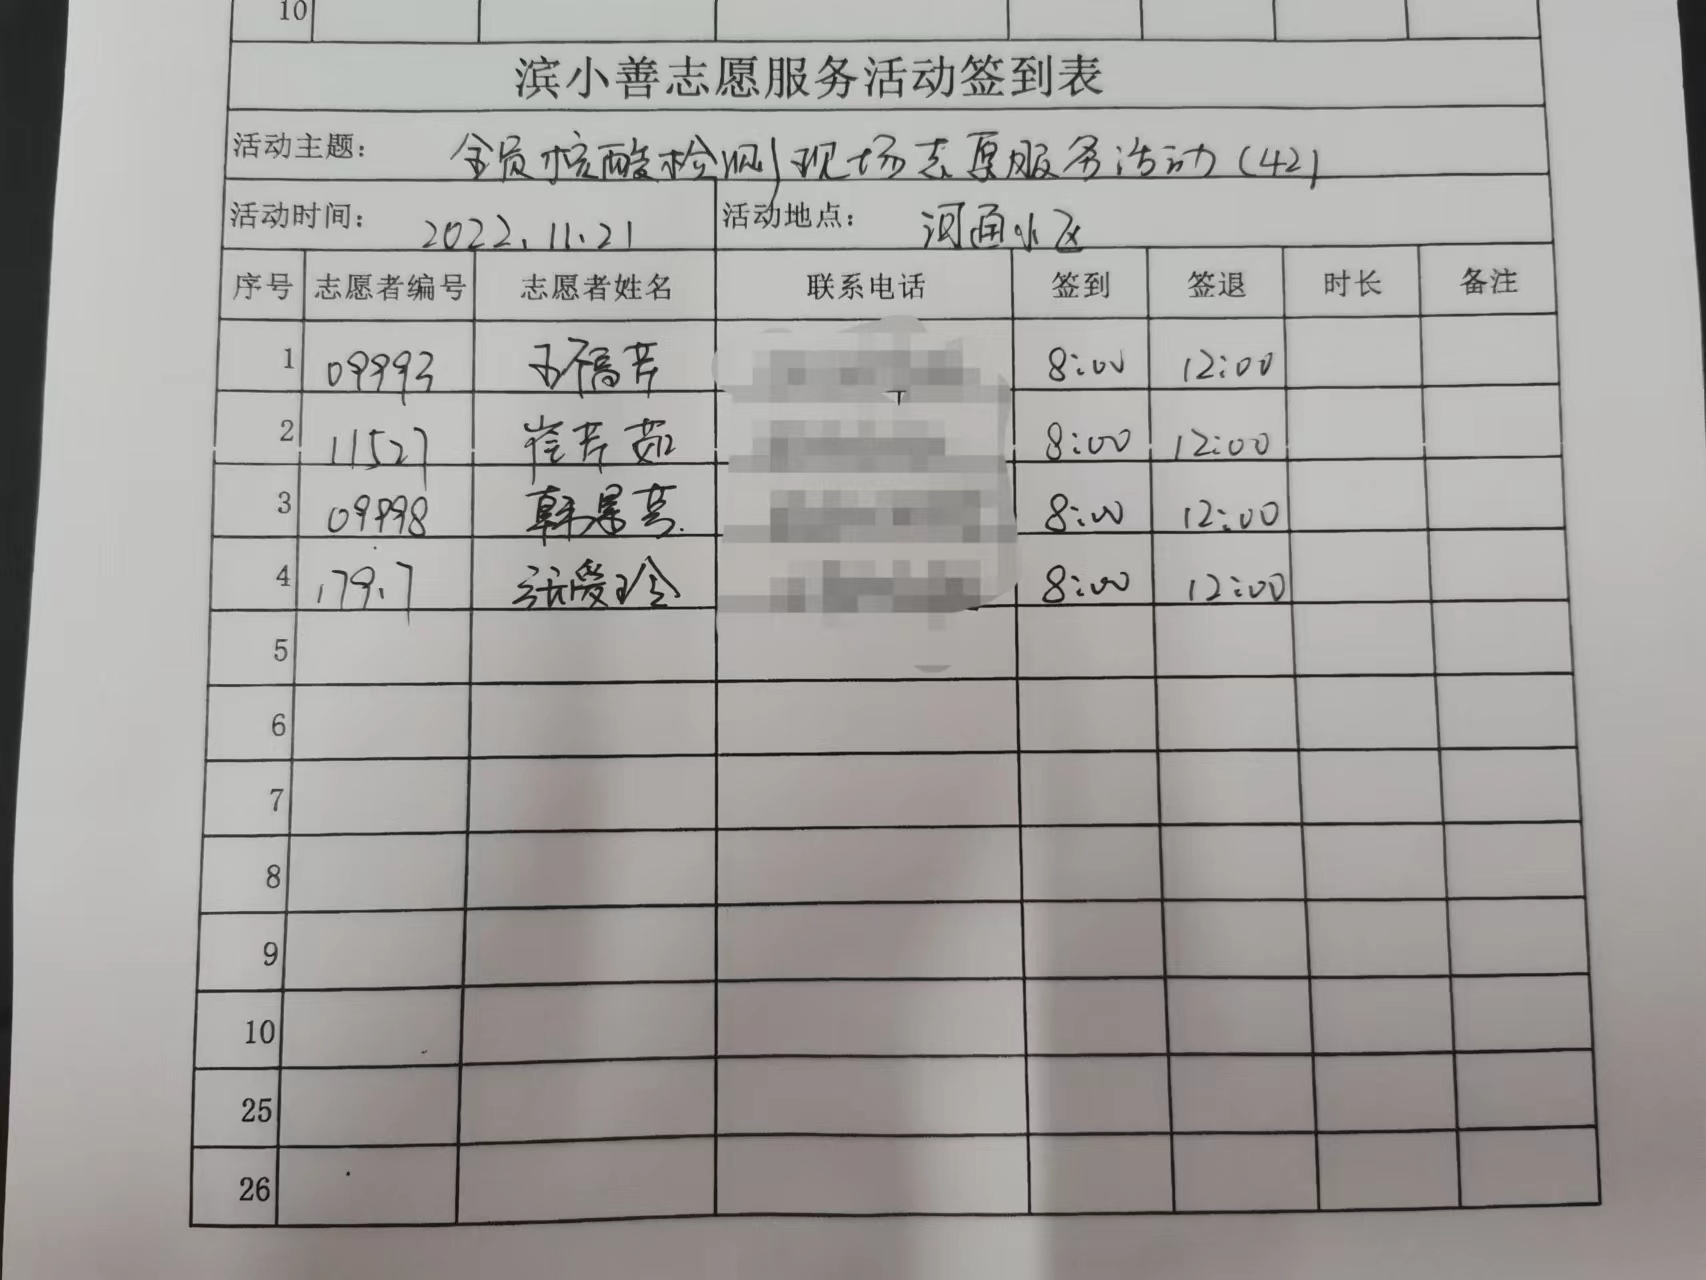 10
滨小善志愿服务活动签到表
活动主题： 全员核酸检测现场志愿服务活动(42)
活动时间： 2022.11.21 活动地点： 河通小区
序号 志愿者编号 志愿者姓名 联系电话 签到 签退 时长 备注
1 09993 王福芹 8:00 12:00
2 11527 崔芹茹 8:00 12:00
3 09998 韩景芝 8:00 12:00
4 17917 张爱珍 8:00 12:00
5
6
7
8
9
10
25
26